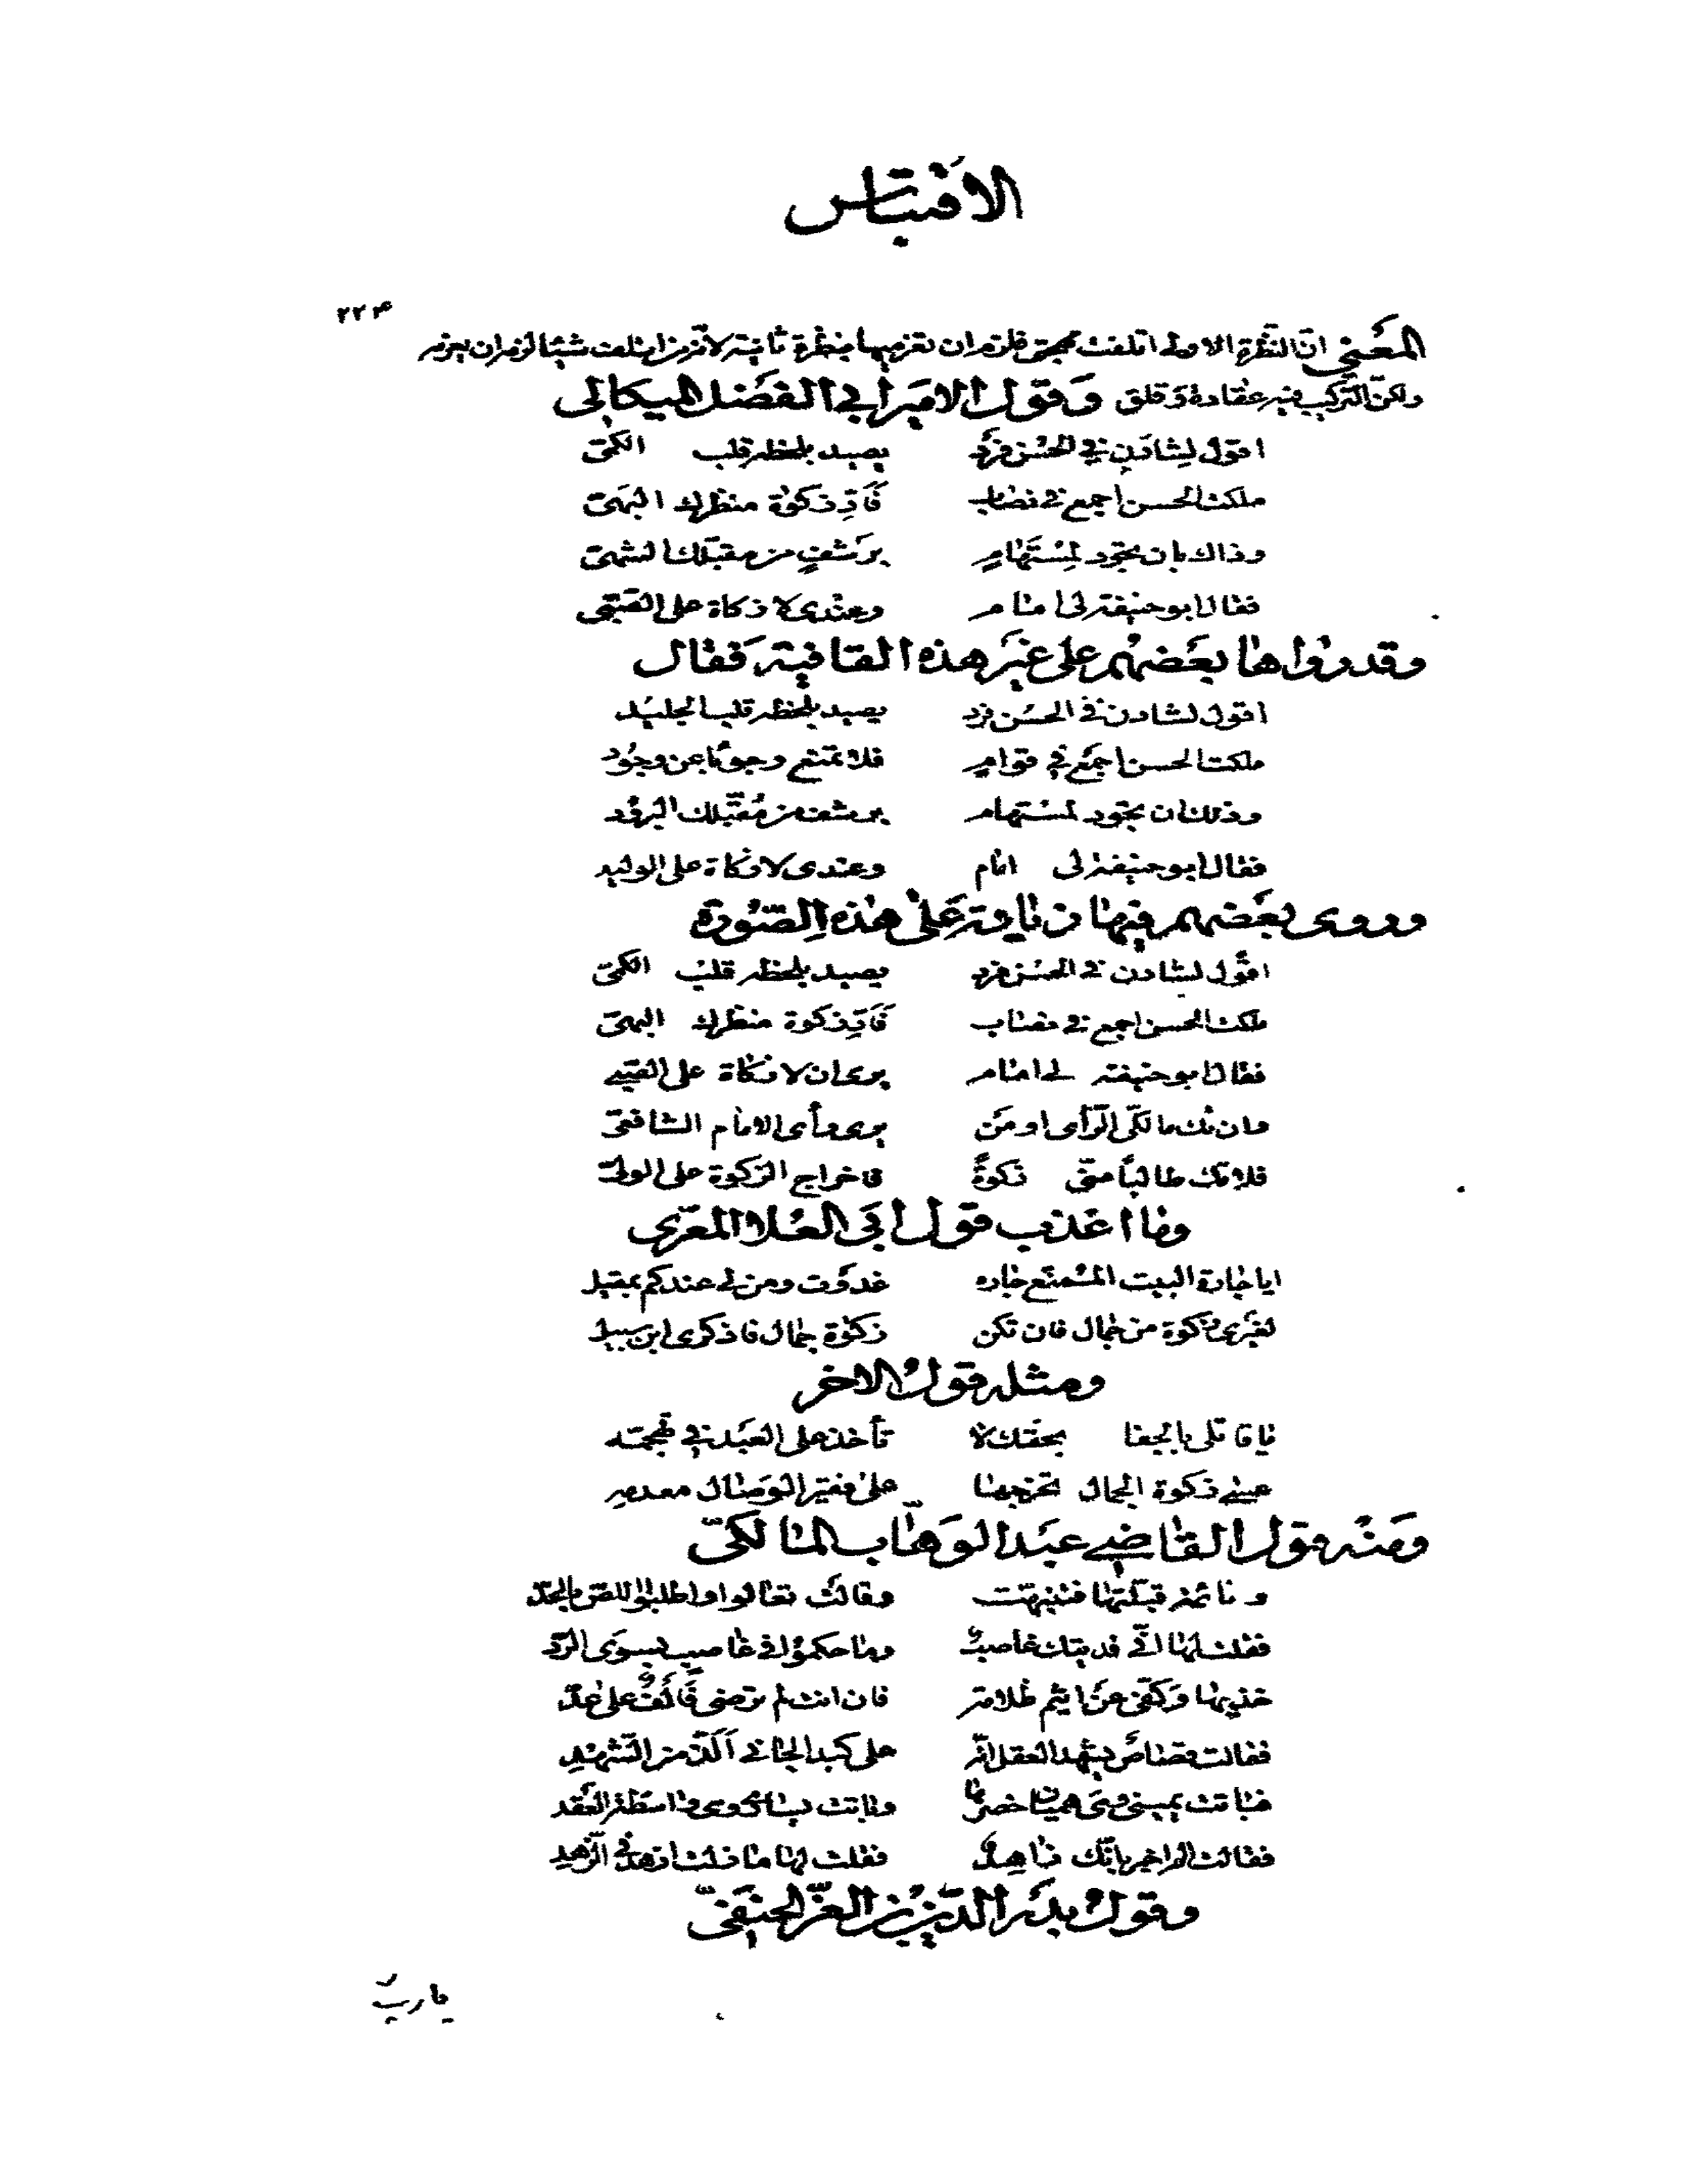 الاقتباس
٢٢٤
المعنى ان النظرة الاولى اتلفت مهجتى فلزم ان تغرمها بنظرة ثانية لان من اتلف شيئا لزم ان يغرمه
ولكن التركيب فيه عقادة وقلق وقول الامير ابي الفضل الميكالى
اقول لشادن في الحسن فرد يصيد بلحظه قلب الكمى
ملكت الحسن اجمع فى نصاب فَاَدِّ زكوة منظرك البهىّ
وذاك بان تجود لمستهام برشف من مقبلك الشهىّ
فقال ابو حنيفة لى امام وعندى لا زكاة على الصبى
وقد رواها بعضهم على غير هذه القافية فقال
اقول لشادن فى الحسن فرد يصيد بلحظه قلب الجليد
ملكت الحسن اجمع في قوام فلا تمنع وجوبا عن وجود
وذلك ان تجود لمستهام برشف من مقبلك البرود
فقال ابو حنيفة لى امام وعندى لا زكاة على الوليد
وروى بعضهم فيها زيادة على هذه الصورة
اقول لشادن فى الحسن فرد يصيد بلحظه قلب الكمىّ
ملكت الحسن اجمع فى نصاب فَاَدِّ زكوة منظرك البهىّ
فقال ابو حنيفة لى امام يرى ان لا زكاة على الصبى
وان تك مالكىّ الرأى او من يرى رأى الامام الشافعىّ
فلا تك طالبًا منّى زكوةً فاخراج الزكوة على الولىّ
وما اعذب قول ابى العلا المعرى
ايا جارة البيت الممنع جاره غدوت ومن لى عندكم بمقيل
لغيرى زكوة من جمال فان تكن زكوة جمال فاذكرى ابن سبيل
ومثله قول الاخر
يا قاتلى بالجفا بحقك لا تأخذ على العبد فى تهجمه
عسى زكوة الجمال تخرجها على فقير الوصال معدمه
ومنه قول القاضى عبد الوهاب المالكىّ
ونائمة قبلتها فتنبهت وقالت تعالوا واطلبوا اللص بالحدّ
فقلت لها انّى فديتك غاصبٌ وما حكموا فى غاصب بسوى الردّ
خذيها وكفّى عن اثيم ظلامة فان انت لم ترضى فألفٌ على عدّ
فقالت قصاصٌ يشهد العقل انّه على كبد الجانى الذّ من الشهد
فباتت يمينى وهى هميان خصرها وباتت يسارى وهى واسطة العقد
فقالت الم اخبر بانّك زاهدٌ فقلت لها ما زلت ازهد فى الزهد
وقول بدر الدين بن العزّ الحنفىّ
يا ربّ